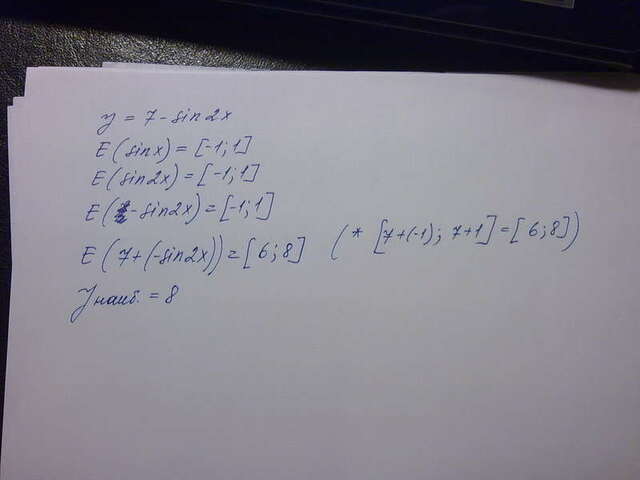 y = 7 - sin2x
E(sinx) = [-1; 1]
E(sin2x) = [-1; 1]
E(-sin2x) = [-1; 1]
E(7+(-sin2x)) = [6; 8] (* [7+(-1); 7+1] = [6; 8])
Yнаиб. = 8